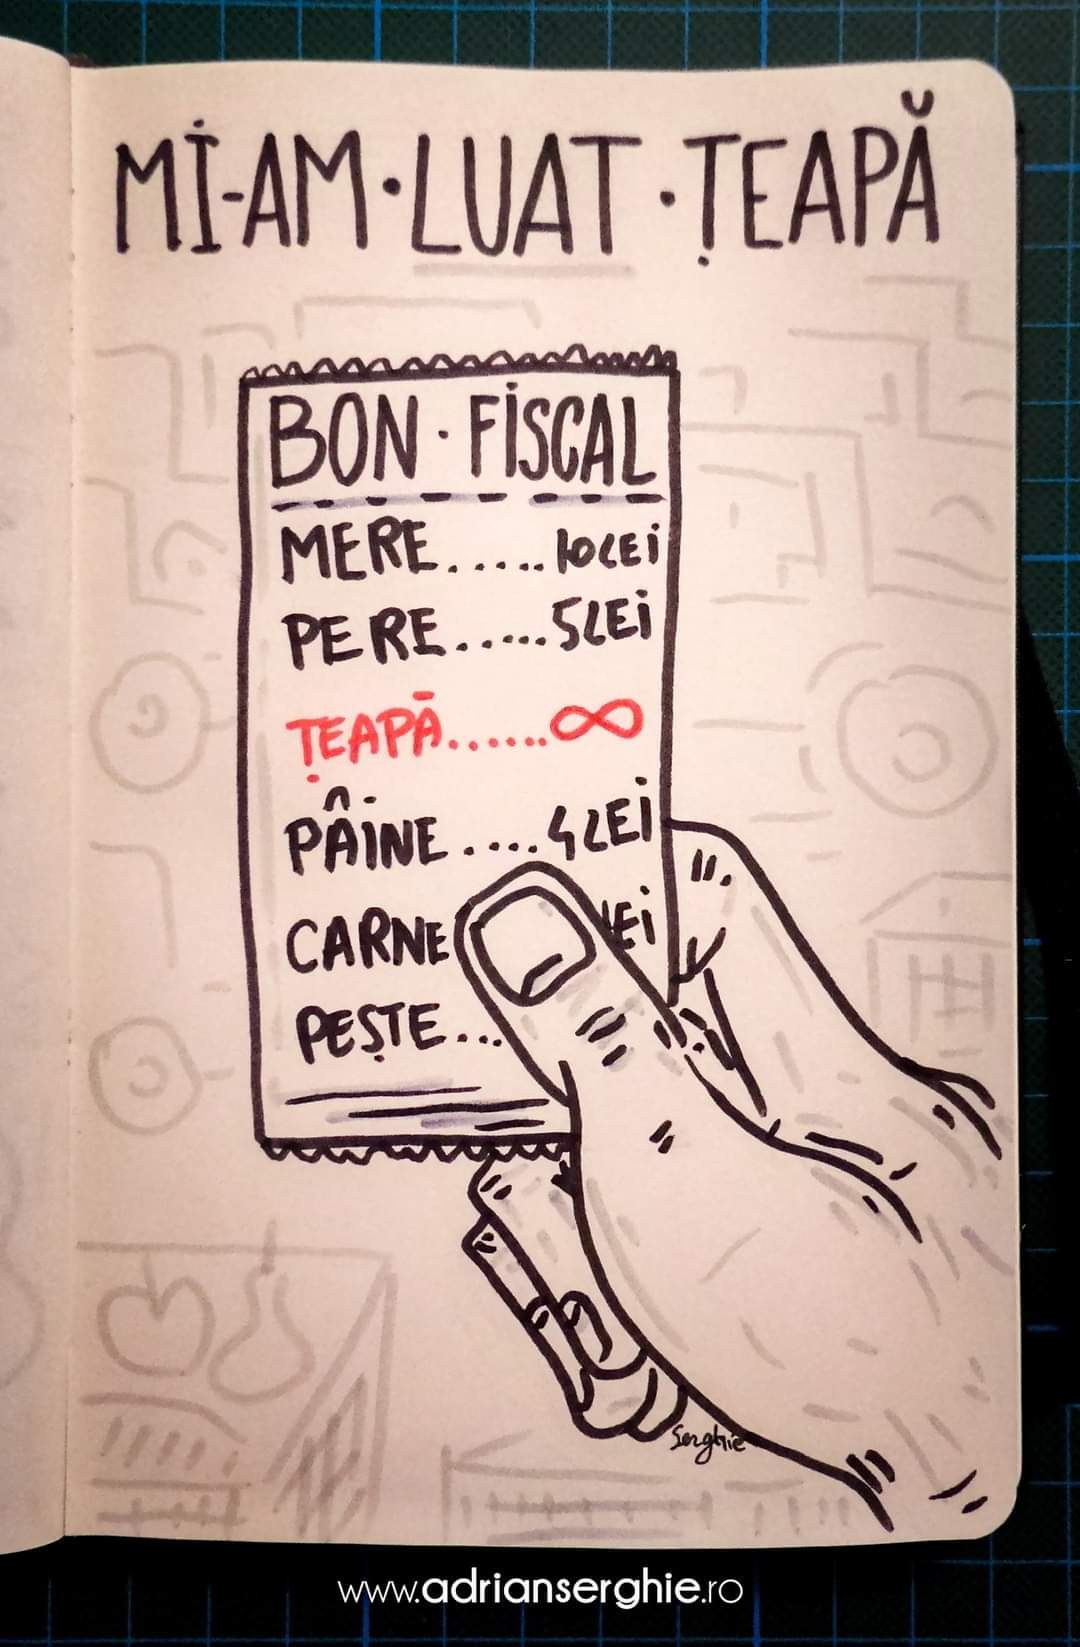 MI-AM·LUAT·ȚEAPĂ
BON·FISCAL
MERE.....10LEI
PERE.....5LEI
ȚEAPĂ.......∞
PÂINE....4LEI
CARNE LEI
PEȘTE...
Serghie
www.adrianserghie.ro